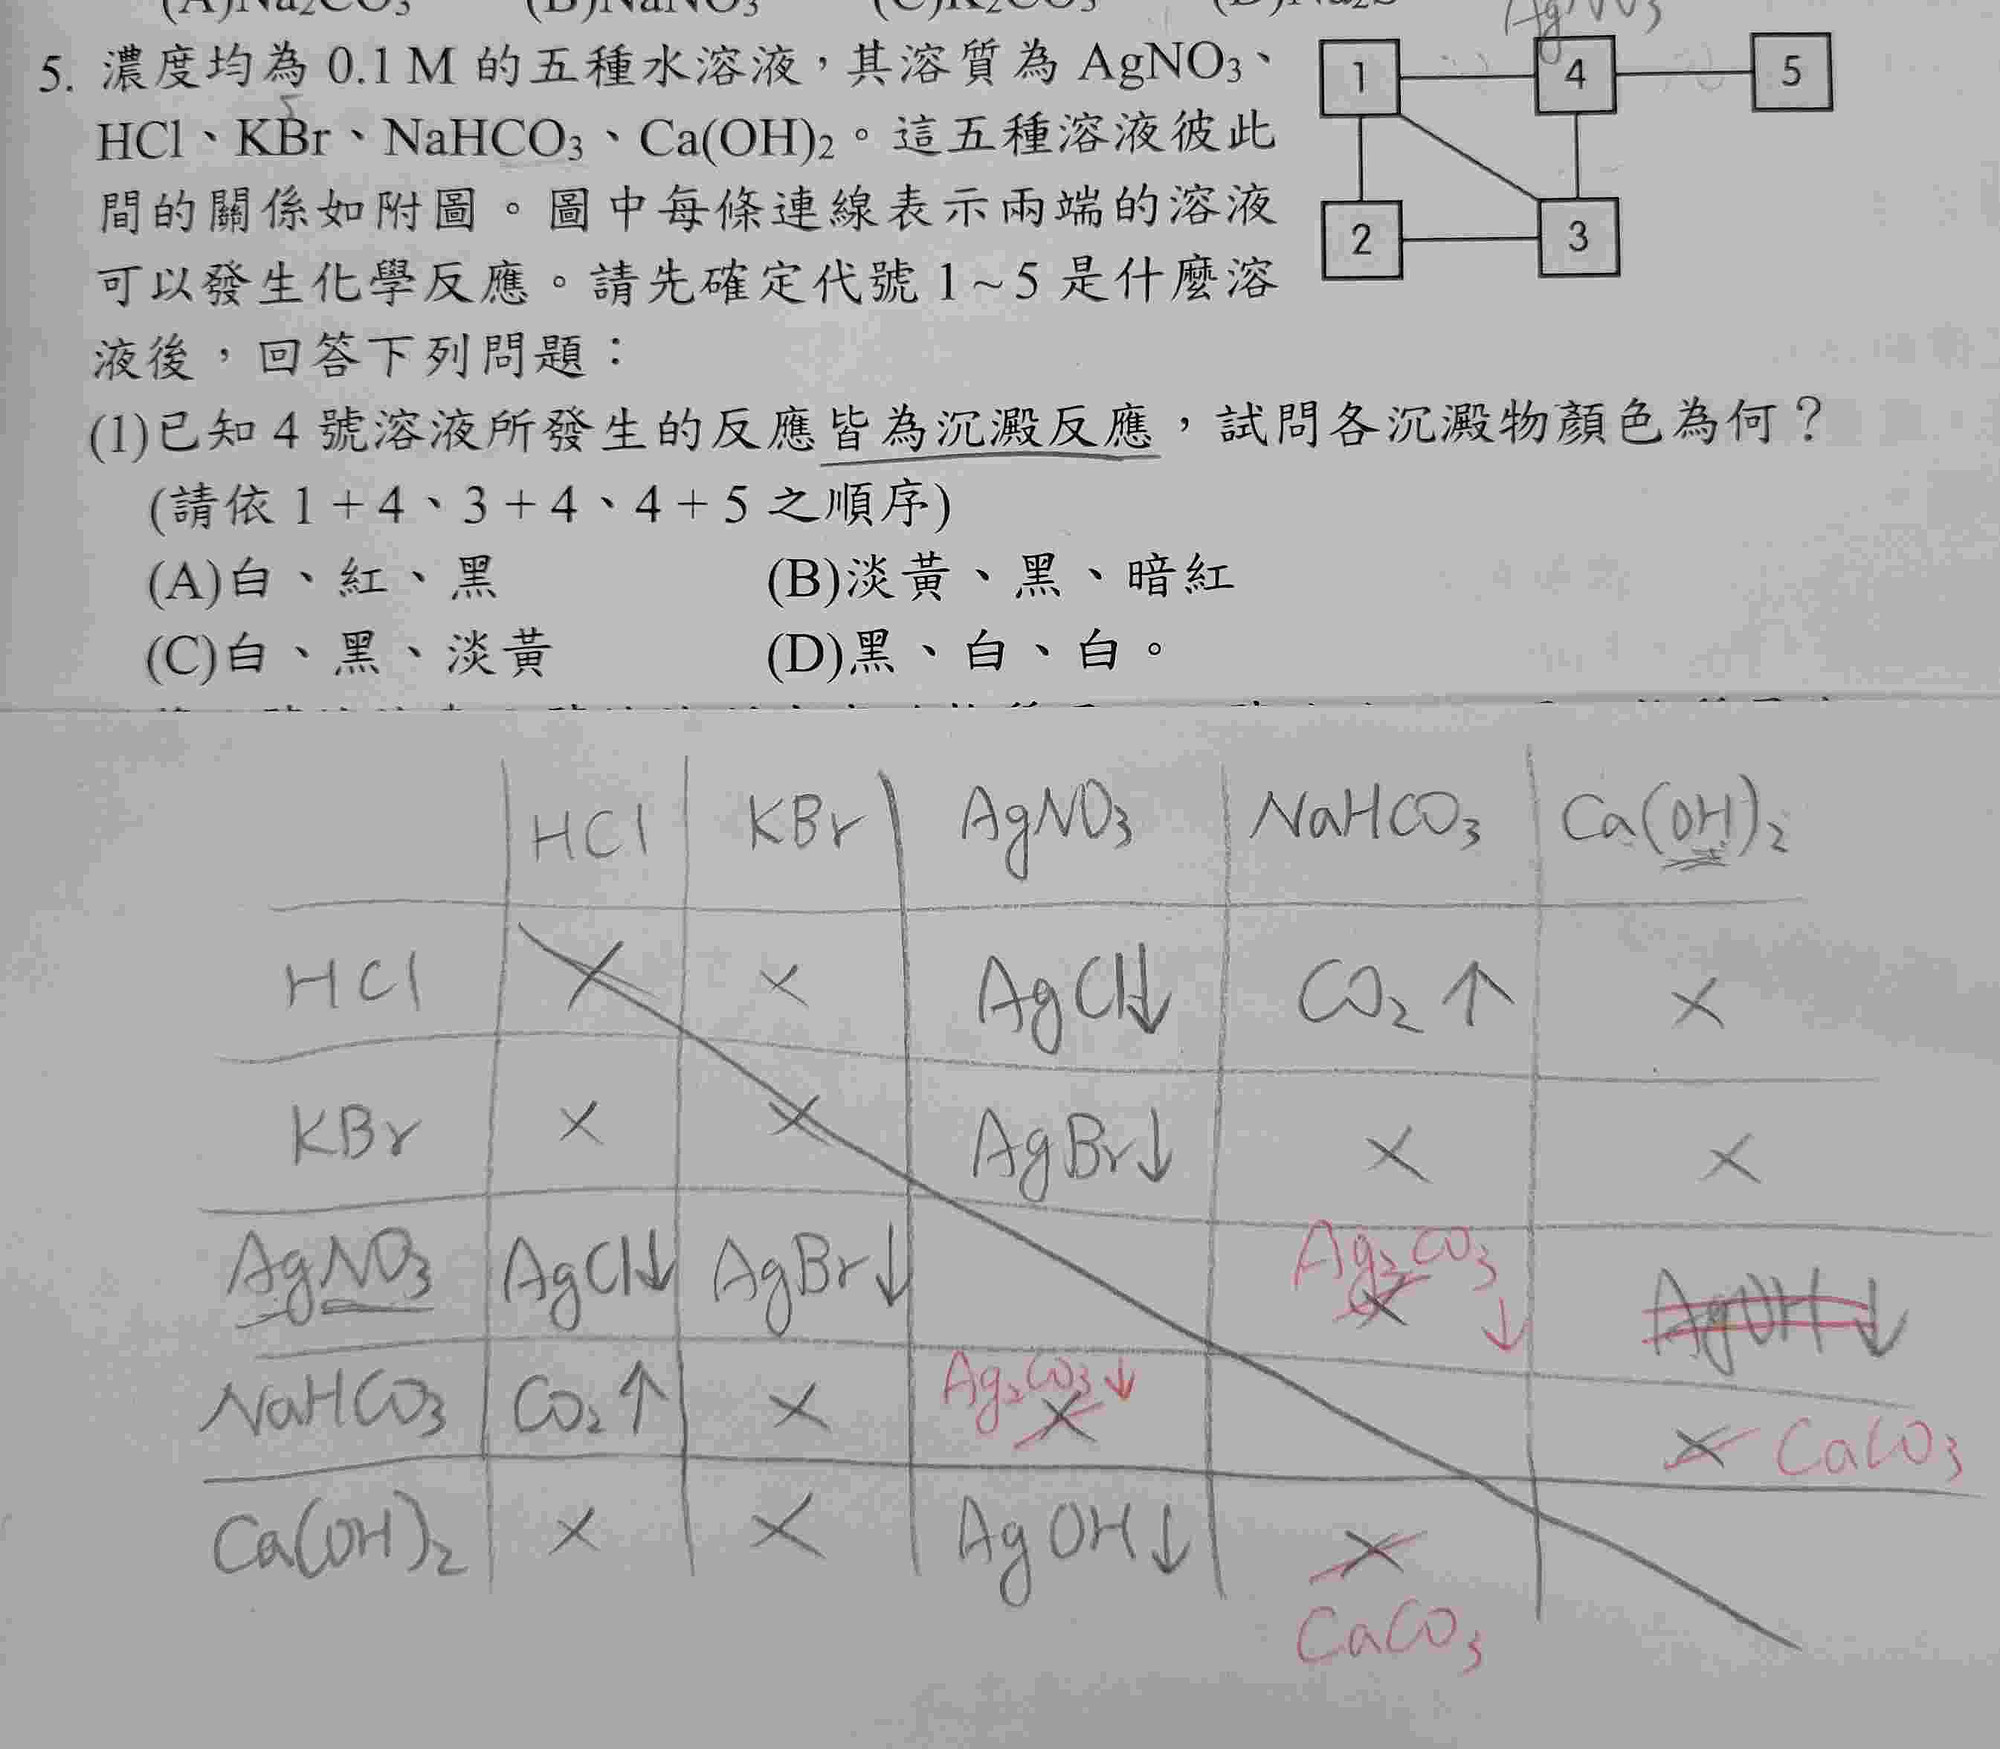 5. 濃度均為 0.1 M 的五種水溶液，其溶質為 AgNO₃、
HCl、KBr、NaHCO₃、Ca(OH)₂。這五種溶液彼此
間的關係如附圖。圖中每條連線表示兩端的溶液
可以發生化學反應。請先確定代號 1～5 是什麼溶
液後，回答下列問題：
AgNO₃
1 4 5
2 3
(1)已知 4 號溶液所發生的反應皆為沉澱反應，試問各沉澱物顏色為何？
(請依 1＋4、3＋4、4＋5 之順序)
(A)白、紅、黑 (B)淡黃、黑、暗紅
(C)白、黑、淡黃 (D)黑、白、白。
HCl KBr AgNO₃ NaHCO₃ Ca(OH)₂
HCl × × AgCl↓ CO₂↑ ×
KBr × × AgBr↓ × ×
AgNO₃ AgCl↓ AgBr↓ Ag₂CO₃↓ × AgOH↓
NaHCO₃ CO₂↑ × Ag₂CO₃↓ × × CaCO₃
Ca(OH)₂ × × AgOH↓ × CaCO₃